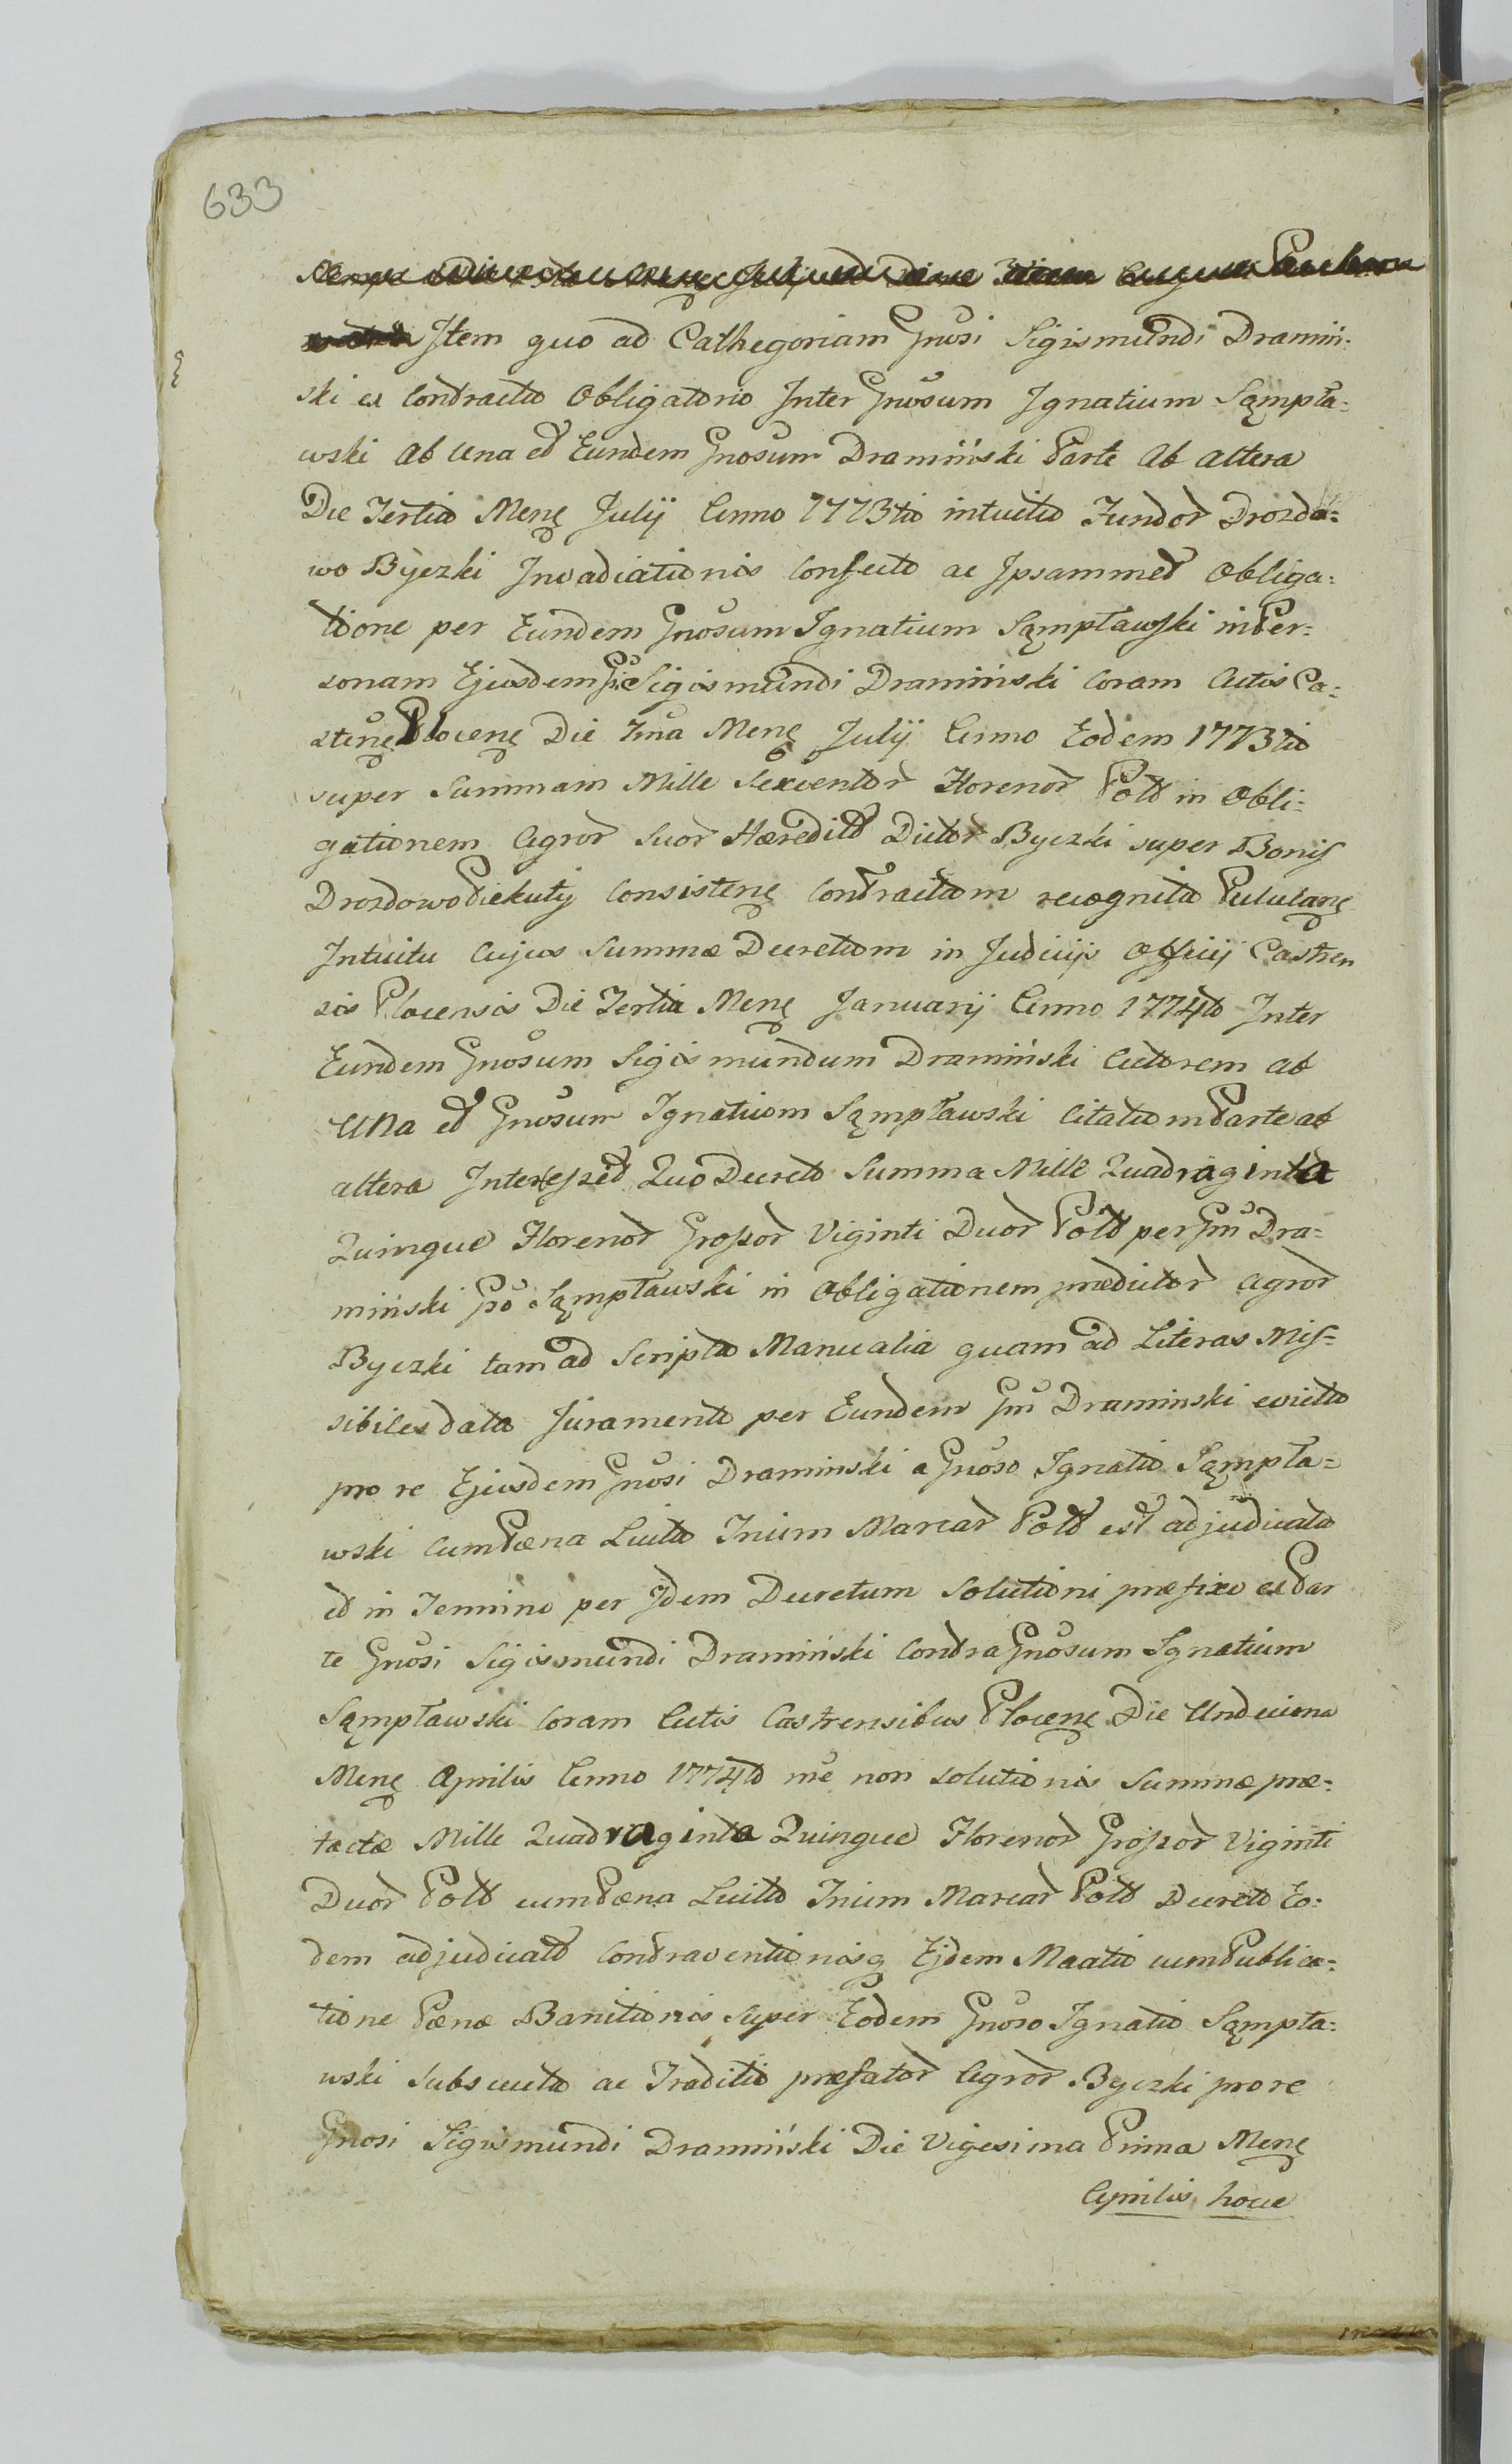 633
Item quo ad Cathegoriam Gnosi Sigismundi Dramiń:
ski ex Contractu Obligatorio Inter Gnosum Ignatium Sąmpła:
wski ab una et Eundem Gnosum Dramiński Parte ab altera
Die Tertia Menę Julij Anno 1773tio intuitu Fundor Drozdo:
wo Byczki Invadiationis Confecto ac Ipsammet Obliga:
tione per Eundem Gnosum Ignatium Sąmpławski in Per:
sonam Ejusdem Gsi Sigismundi Dramiński Coram Actis Ca:
stenę Plocenę Die 7ma Menę Julij Anno Eodem 1773tio
super Summam Mille Sexcentor Florenor Polł in Obli:
gationem Agror Suor Hæredit Dictor Byczki super Bonis
Drozdowo Piekuty Consistenę Contractum recognita Pululanę
Intuitu Cujus Summæ Decretum in Judicijs Officij Castren
sis Plocensis Die Tertia Menę Januarij Anno 1774to Inter
Eundem Gnosum Sigismundum Dramiński Actorem ab
una et Gnosum Ignatium Sąmpławski Citatum Parte ab
altera Intercessit Quo Decreto Summa Mille Quadraginta
Quinque Florenor Grossor Viginti Duor Polł per Gm Dra:
miński Go Sąmpławski in Obligationem prædictor Agror
Byczki tam ad Scripta Manualia quam ad Literas Mis=
sibiles data Juramento per Eundem Gm Draminski evicta
pro re Ejusdem Gnosi Draminski a Gnoso Ignatio Sąmpła=
wski cum Pæna Luita Trium Marcar Polł est adjudicata
et in Termino per Idem Decretum Solutioni præfixo ex Par
te Gnosi Sigismundi Dramiński Contra Gnosum Ignatium
Sąmpławski Coram Actis Castrensibus Plocenę Die Undecima
Menę Aprilis Anno 1774to rñe non Solutionis Summæ præ:
tactæ Mille Quadraginta Quinque Florenor Grossor Viginti
Duor Polł cum Pæna Luita Trium Marcar Polł Decreto Eo:
dem adjudicatt Contraventionisq Ejdem Maatio cum Publica:
tione Pænæ Banitionis Super Eodem Gnoso Ignatio Sąmpła:
wski Subsecuta ac Traditio præfator Agror Byczki pro re
Gnosi Sigismundi Dramiński Die Vigesima Prima Menę
Aprilis hocce